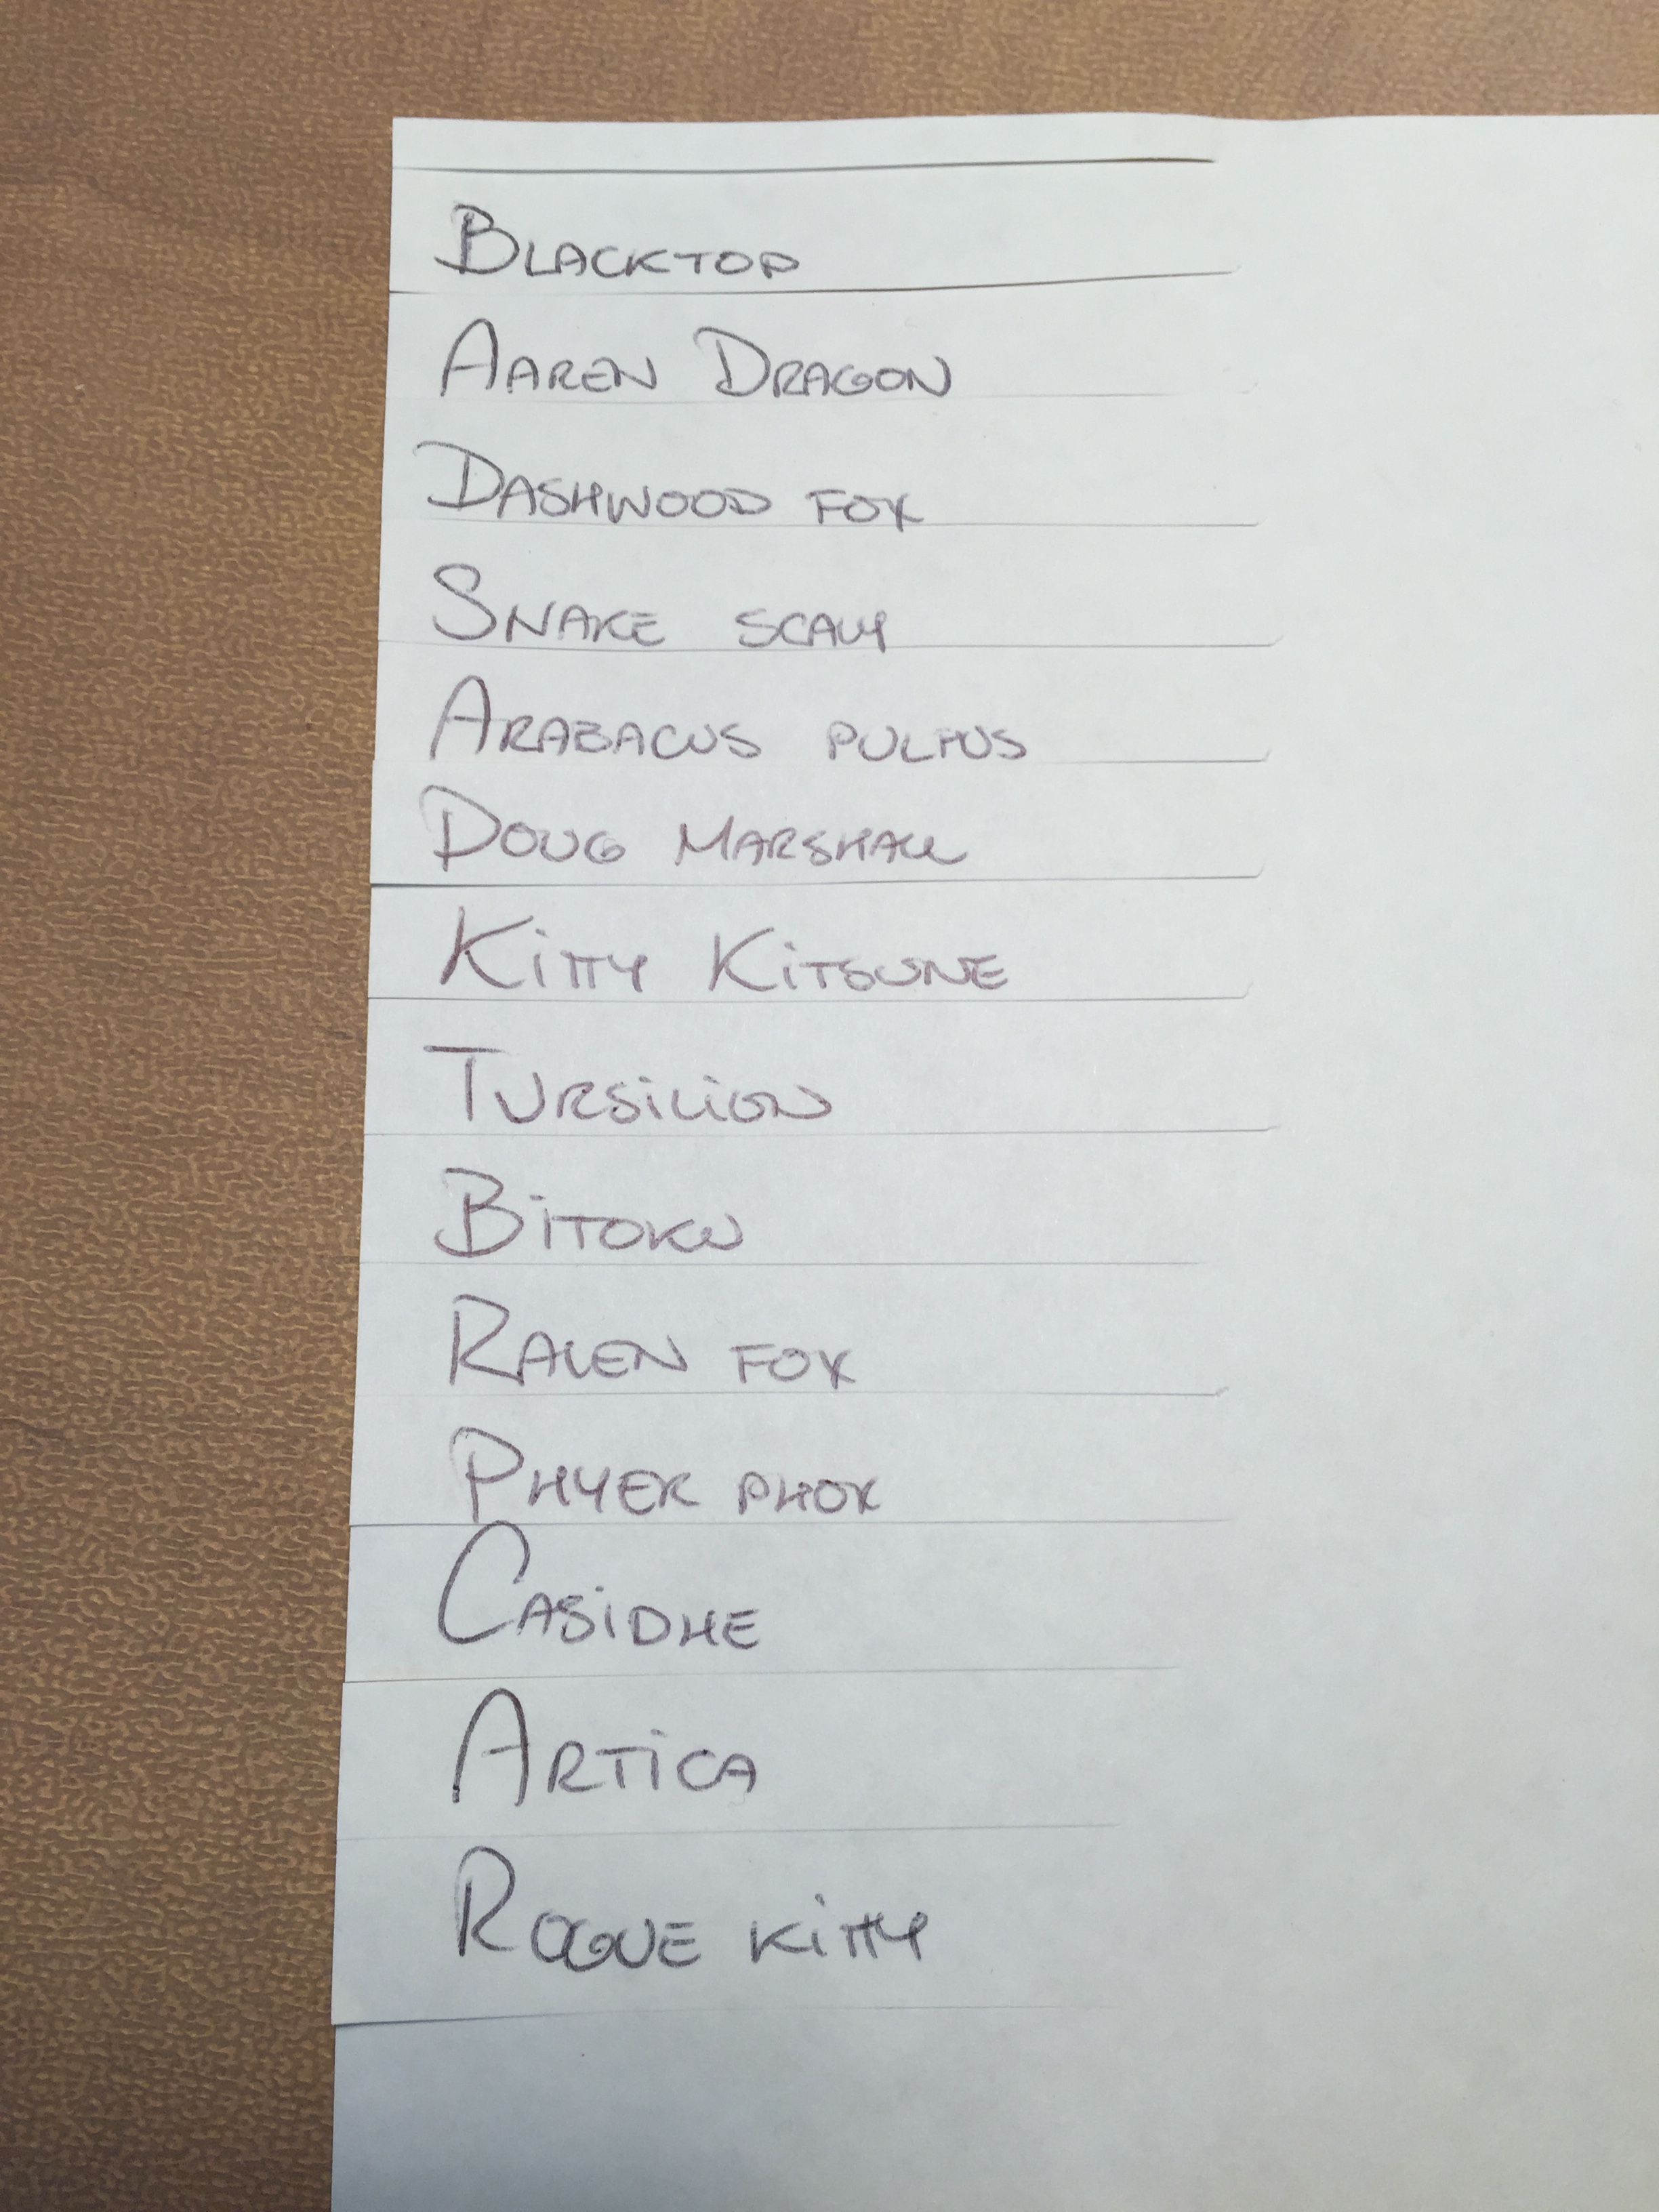 Blacktop
Aaren Dragon
Dashwood Fox
Snake Scaly
Arabacus Pulpus
Doug Marshall
Kitty Kitsune
Tursilion
Bitoku
Ralen Fox
Phyer Phox
Casidhe
Artica
Rogue Kitty